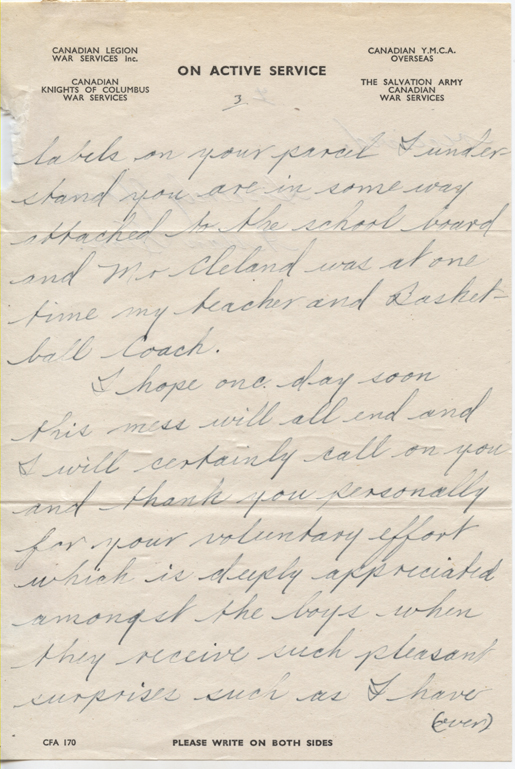 CANADIAN LEGION
WAR SERVICES Inc.
CANADIAN
KNIGHTS OF COLUMBUS
WAR SERVICES
ON ACTIVE SERVICE
CANADIAN Y.M.C.A.
OVERSEAS
THE SALVATION ARMY
CANADIAN
WAR SERVICES
3
labels on your parcel I under-
stand you are in some way
attached to the school board
and Mr Cleland was at one
time my teacher and Basket-
ball Coach.
I hope one day soon
this mess will all end and
I will certainly call on you
and thank you personally
for your voluntary effort
which is deeply appreciated
amongst the boys when
they receive such pleasant
surprises such as I have
(over)
CFA 170
PLEASE WRITE ON BOTH SIDES